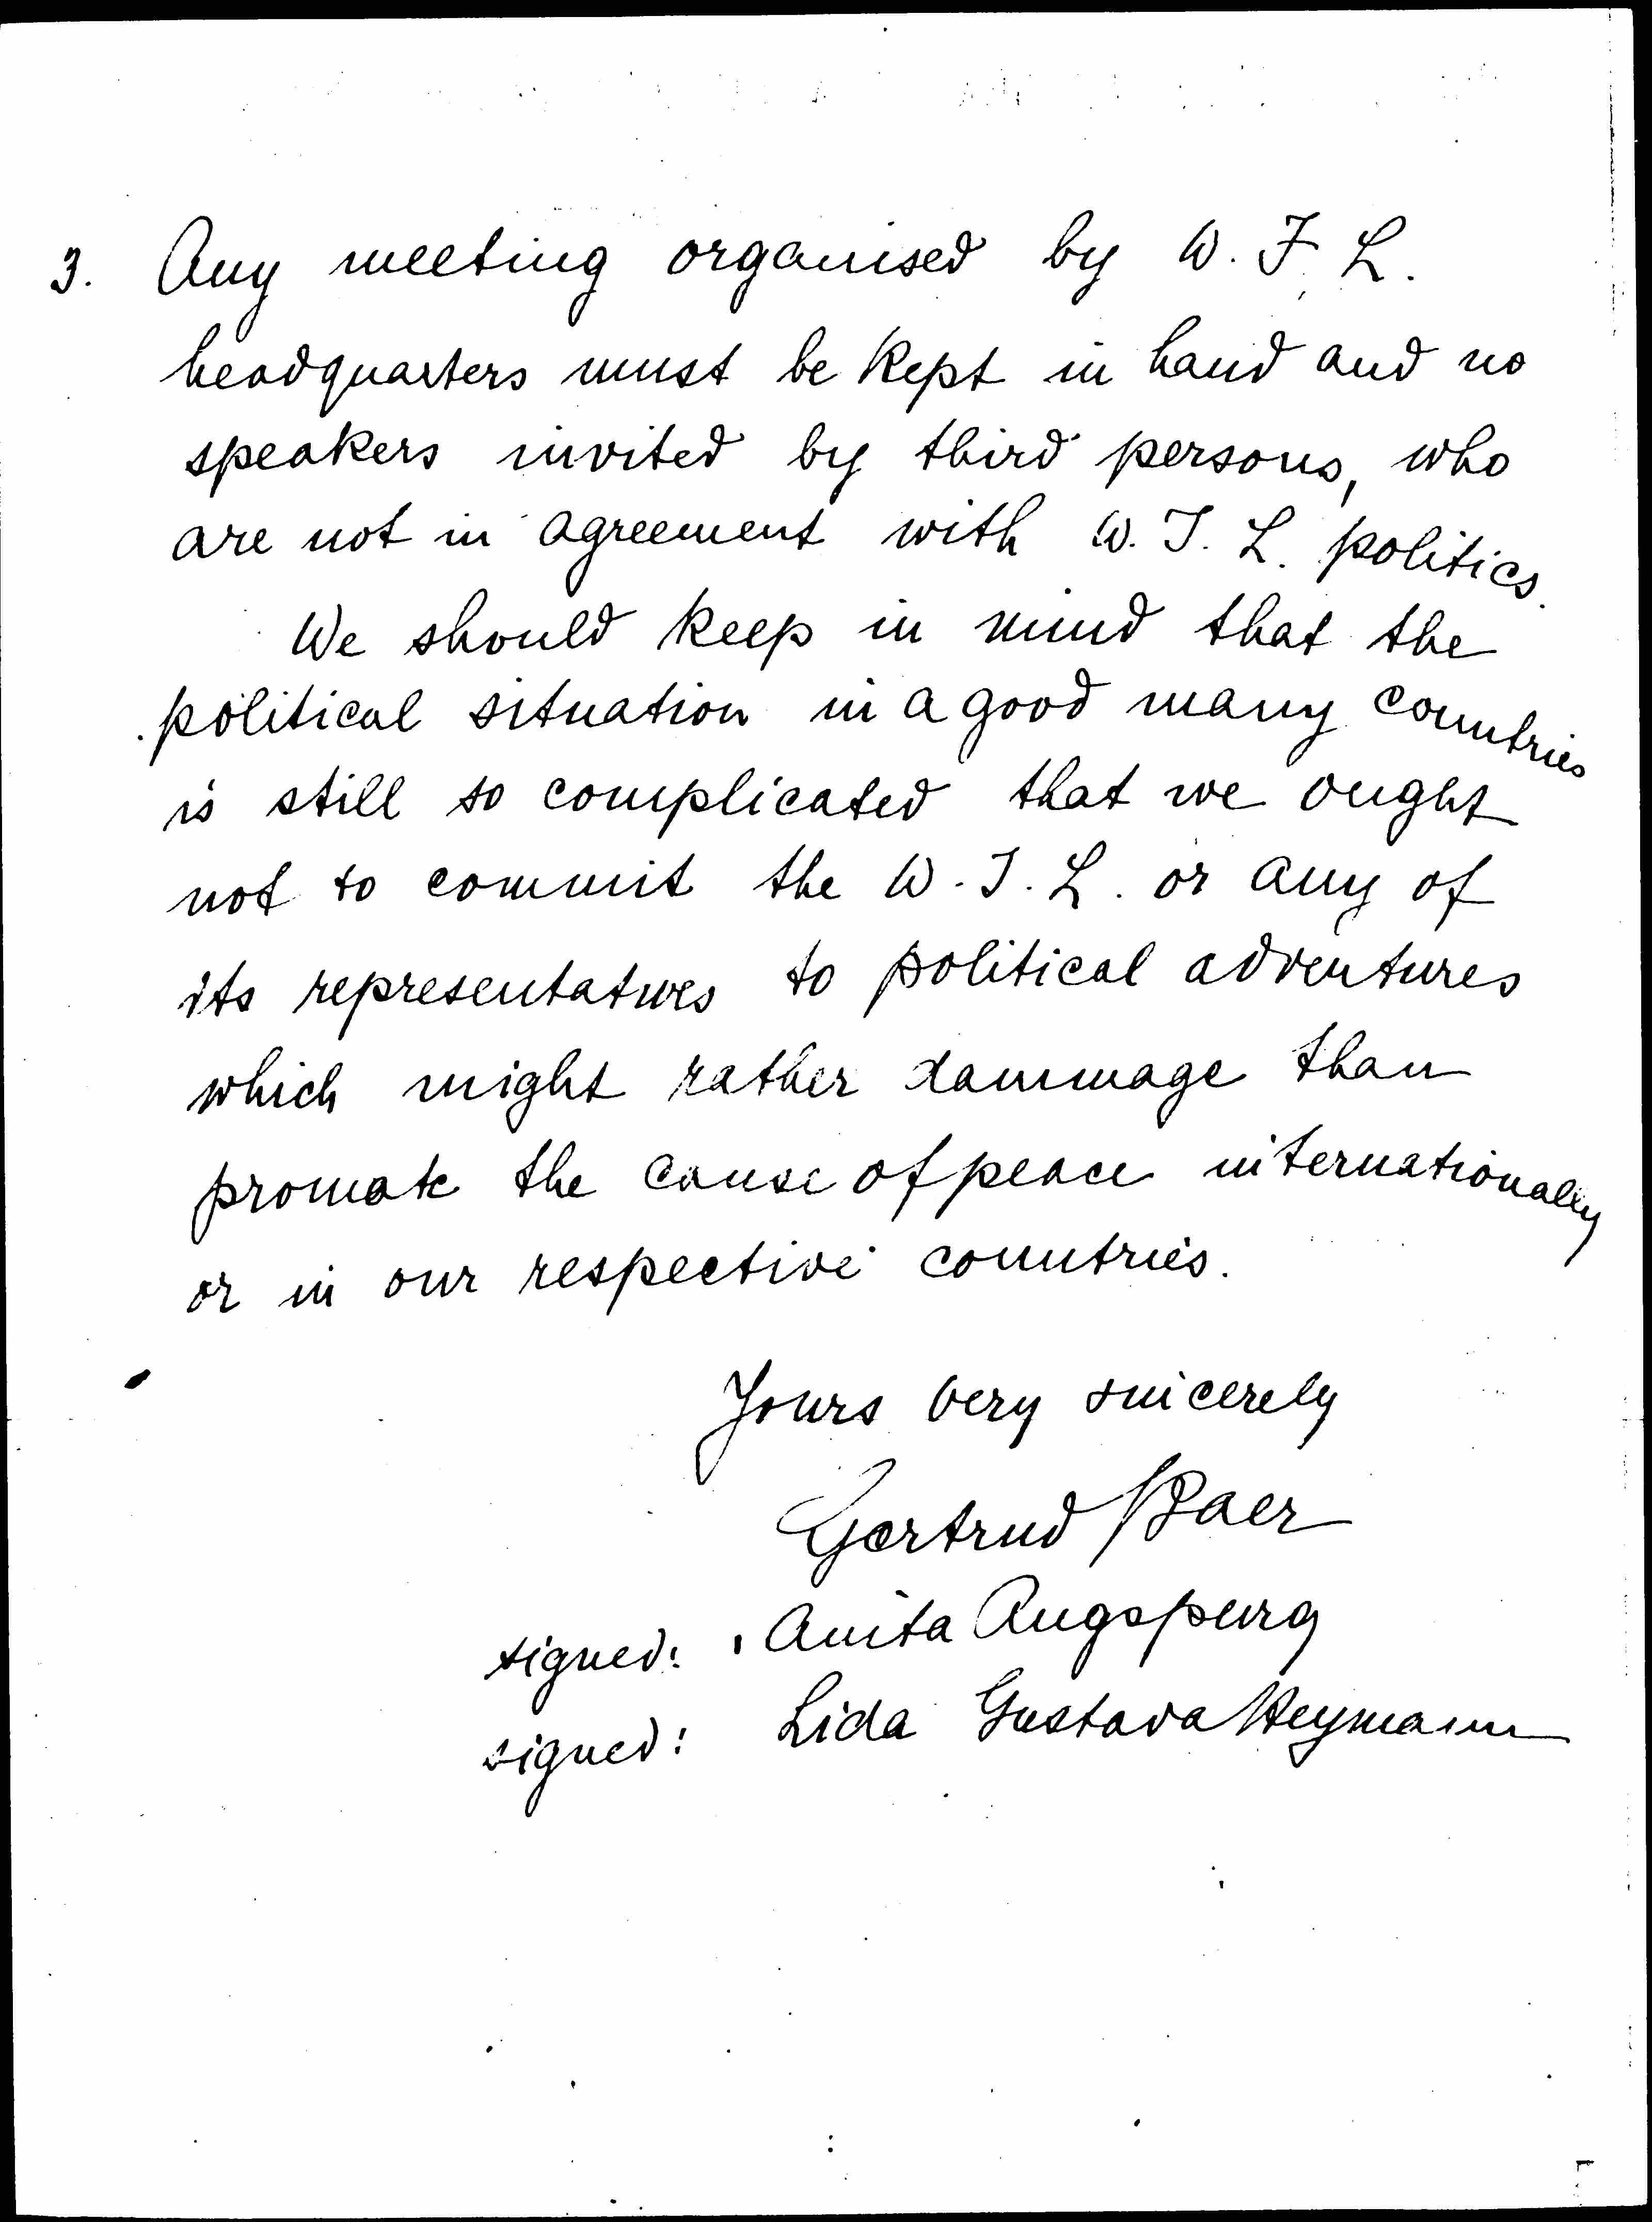 3. Any meeting organised by W. I. L.
headquarters must be kept in hand and no
speakers invited by third persons, who
are not in agreement with W. I. L. politics.
We should keep in mind that the
political situation in a good many countries
is still so complicated that we ought
not to commit the W. I. L. or any of
its representatives to political adventures
which might rather dammage than
promote the cause of peace internationally
or in our respective countries.
Yours very sincerely
Gertrud Baer
signed: Anita Augspurg
signed: Lida Gustava Heymann